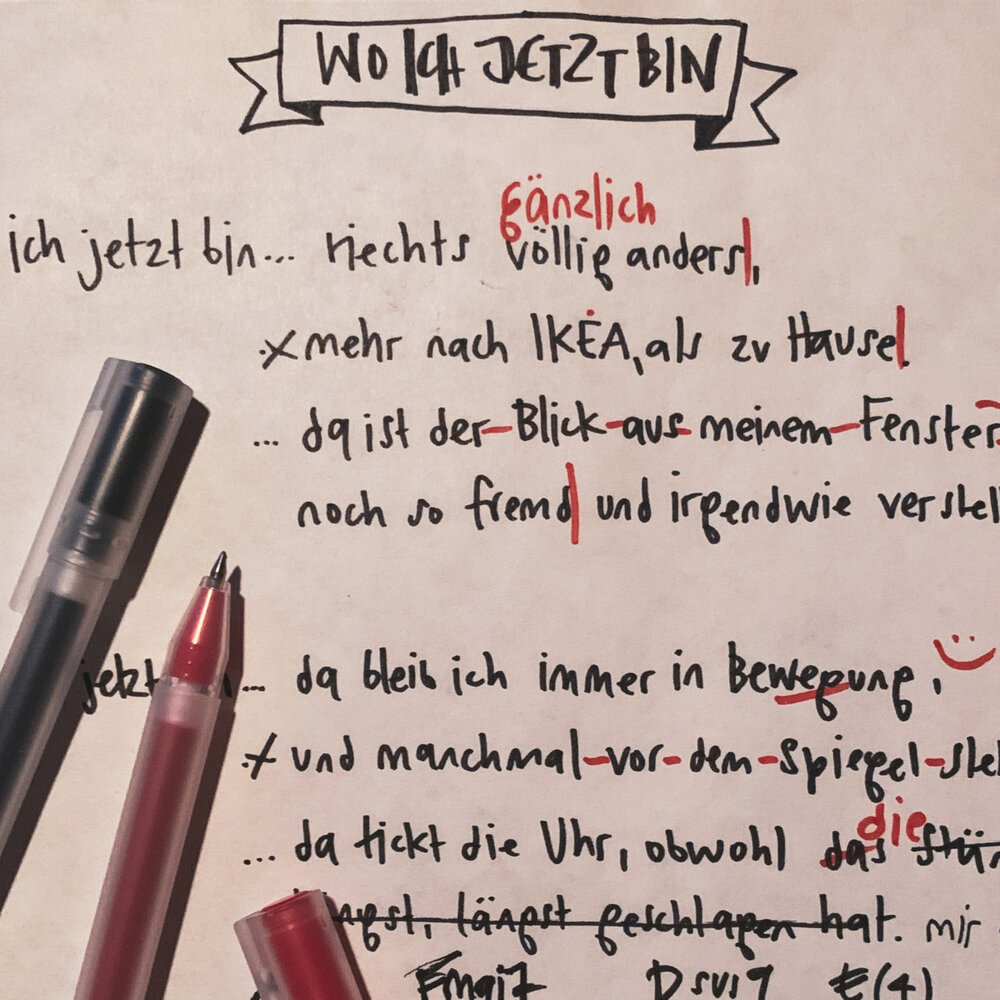 WO ICH JETZT BIN
gänzlich
ich jetzt bin... riechts völlig anders,
mehr nach IKEA, als zu Hause
... da ist der Blick aus meinem Fenster
noch so fremd und irgendwie
jetzt ... da bleib ich immer in Bewegung,
und manchmal vor dem Spiegel
die
... da tickt die Uhr, obwohl das
längst geschlagen hat. mir
Emaj7 Dsus9 E(4)